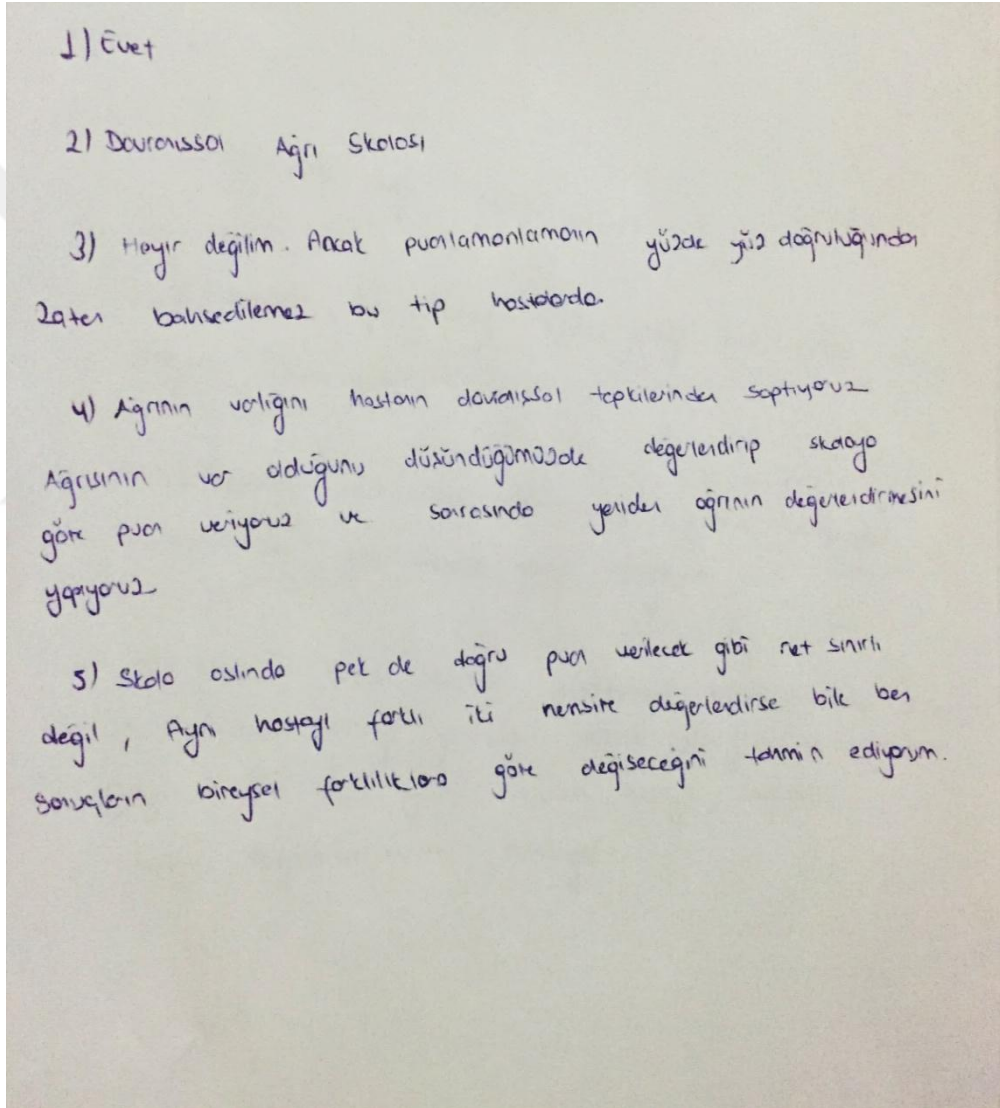 1) Evet
2) Davranıssal Ağrı Skalası
3) Hayır değilim. Ancak puanlamanlamanın yüzde yüz doğruluğundan
zaten bahsedilemez bu tip hastalarda.
4) Ağrının varlığını hastanın davranışsal tepkilerinden saptıyoruz
Ağrısının var olduğunu düşündüğümüzde değerlendirip skalaya
göre puan veriyoruz ve sonrasında yeniden ağrının değerlendirmesini
yapıyoruz
5) Skala aslında pek de doğru puan verilecek gibi net sınırlı
değil, Aynı hastayı farklı iki hemşire değerlendirse bile ben
sonuçların bireysel farklılıklara göre değişeceğini tahmin ediyorum.